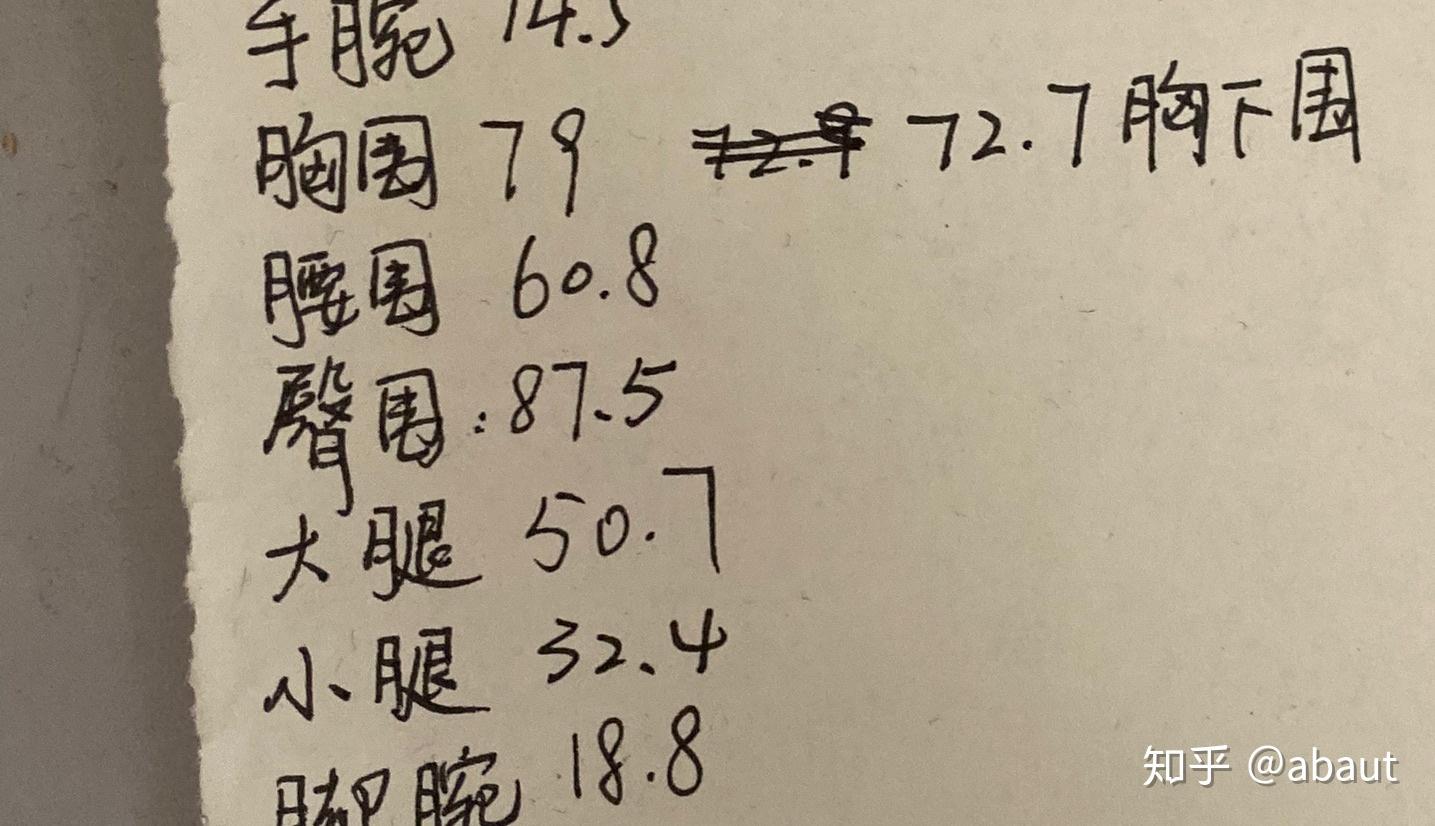 手腕 14.5
胸围 79 72.9 72.7 胸下围
腰围 60.8
臀围:87.5
大腿 50.7
小腿 32.4
脚腕 18.8
知乎 @abaut